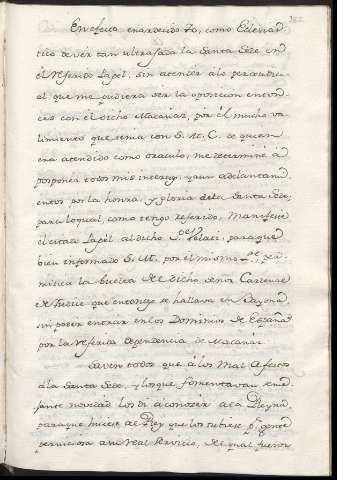 En efecto enardecido Yo, como Eclesias
tico de ver tan ultrajada la Santa Sede en
el referido Papel, sin atender à lo perjudici
al que me pudiera ser la oposicion enton
ces con el dicho Macanàz, por el mucho va
limiento que tenia con S. M. C. de quien
era atendido como oraculo, me determinè à
posponer todos mis interes, y aun adelantam
entos por la honra, y gloria dela Santa Sede,
para lo qual, como tengo referido, Manifestè
el citado Papèl al dicho Polaci, para que
bien informado S. M. por el mismo per
mitiesse la buelta del dicho señor Cardenal
de Iudice que entonces se hallava en Bayona,
sin poder entrar en los Dominios de España
por la referida dependencia de Macanàz.
Saven todos que à los Mal Afectos
à la Santa Sede, y los que fomentavan seme
jante novedad los di a conozer a la Reyna
para que hiciese al Rey que los tubiese por gente
perniciosa a su real servicio, del qual fueron